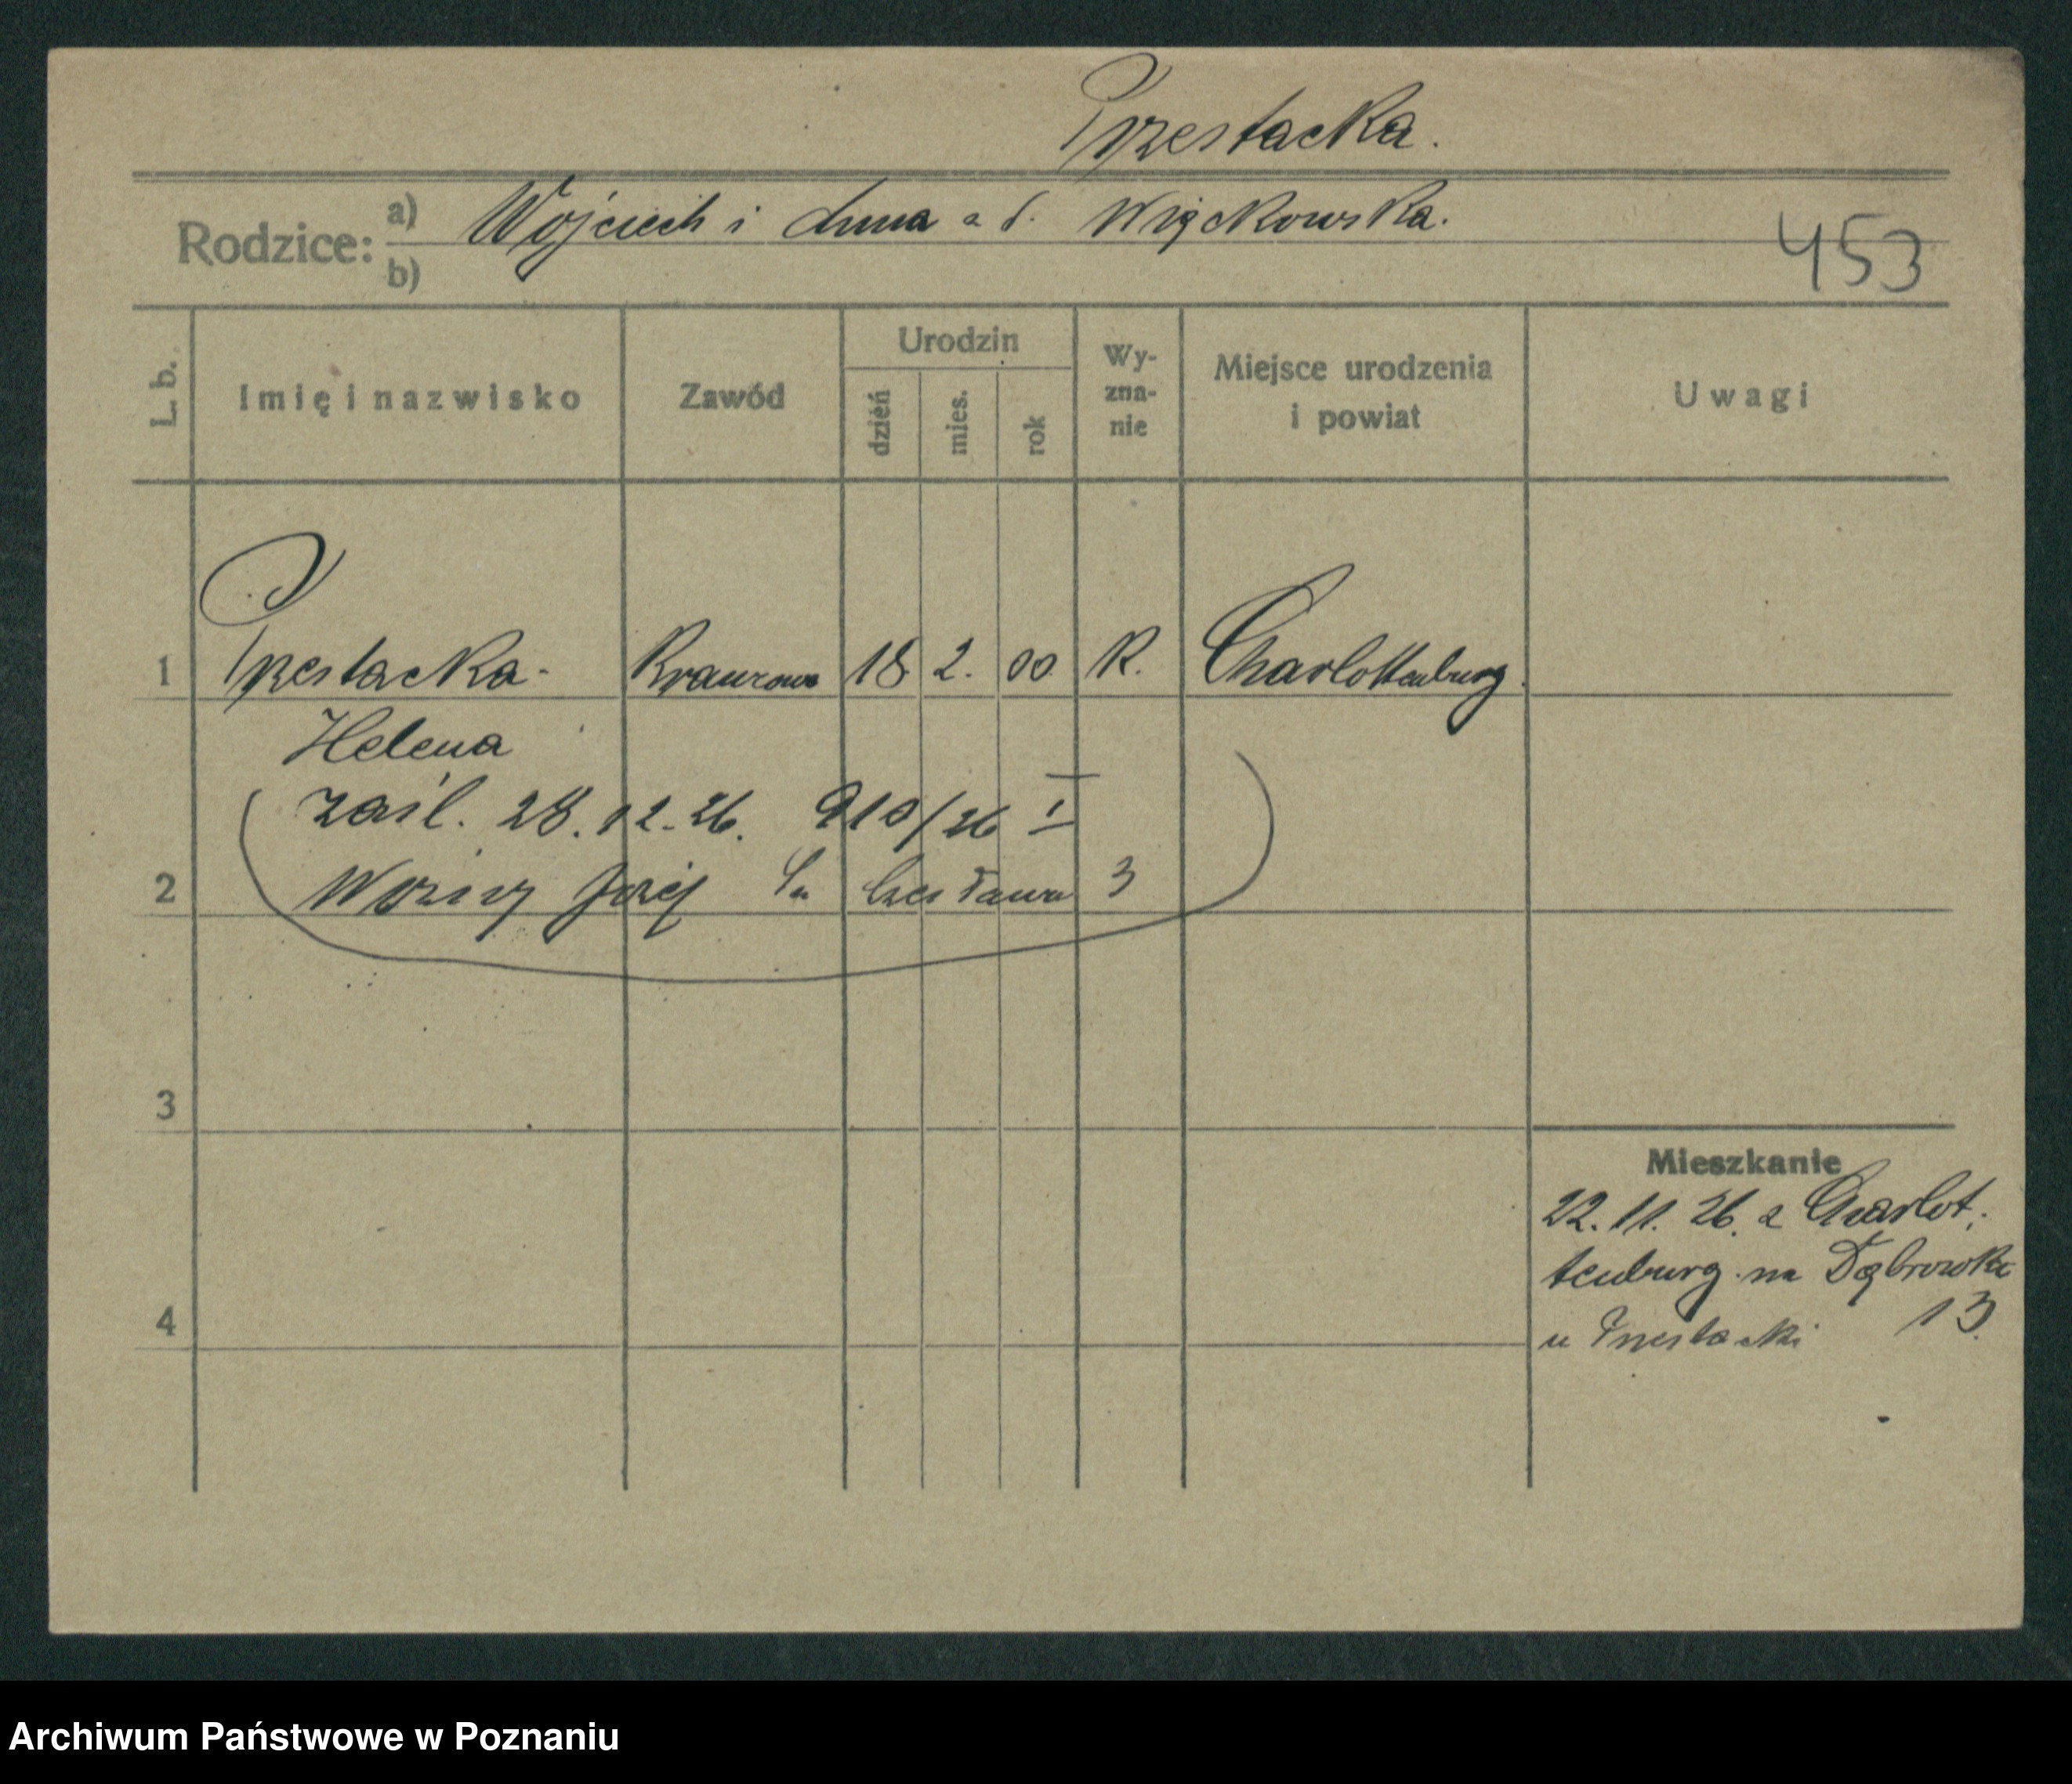 Przestacka.
Rodzice: a) Wojciech i Anna z d. Więckowska.
b)
453
L. b. Imię i nazwisko Zawód Urodzin dzień mies. rok Wyzna-nie Miejsce urodzenia i powiat Uwagi
1 Przestacka - Krawcowa 18 2. 00 R. Charlottenburg.
Helena
zaśl. 28.12.26. 910/26 I
2 Woźny Józef Czesława 3
3
Mieszkanie
22. 11. 26. z Charlot-
tenburg na Dąbrowska
4 u Przestacki 13.
Archiwum Państwowe w Poznaniu